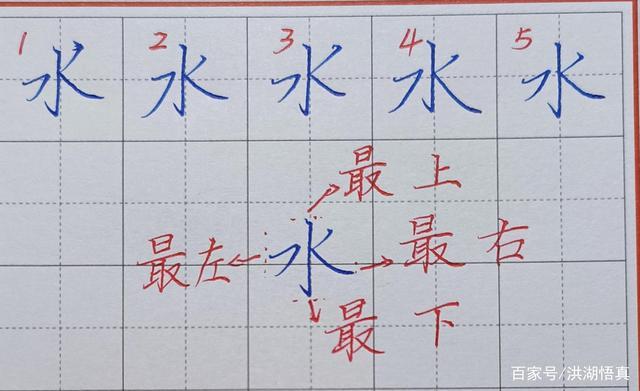 1 2 3 4 5
水 水 水 水 水
最上
最左 水 最右
最下
百家号/洪湖悟真